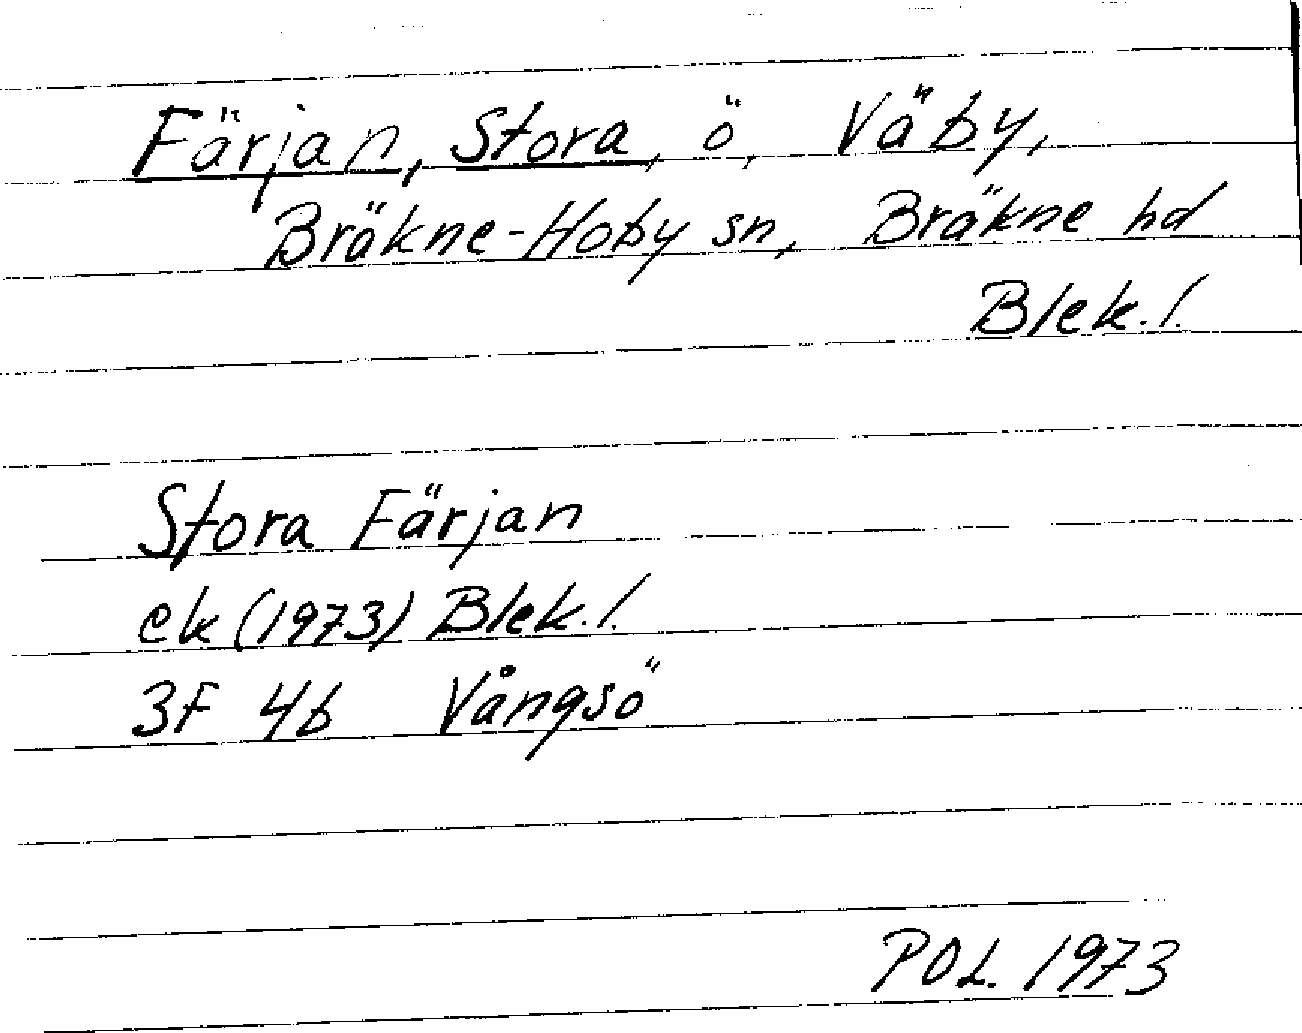 Färjan, Stora, ö, Väby,
Bräkne-Hoby sn, Bräkne hd
Blek. l.
Stora Färjan
ek (1973) Blek. l.
3F 4b Vångsö
POL. 1973